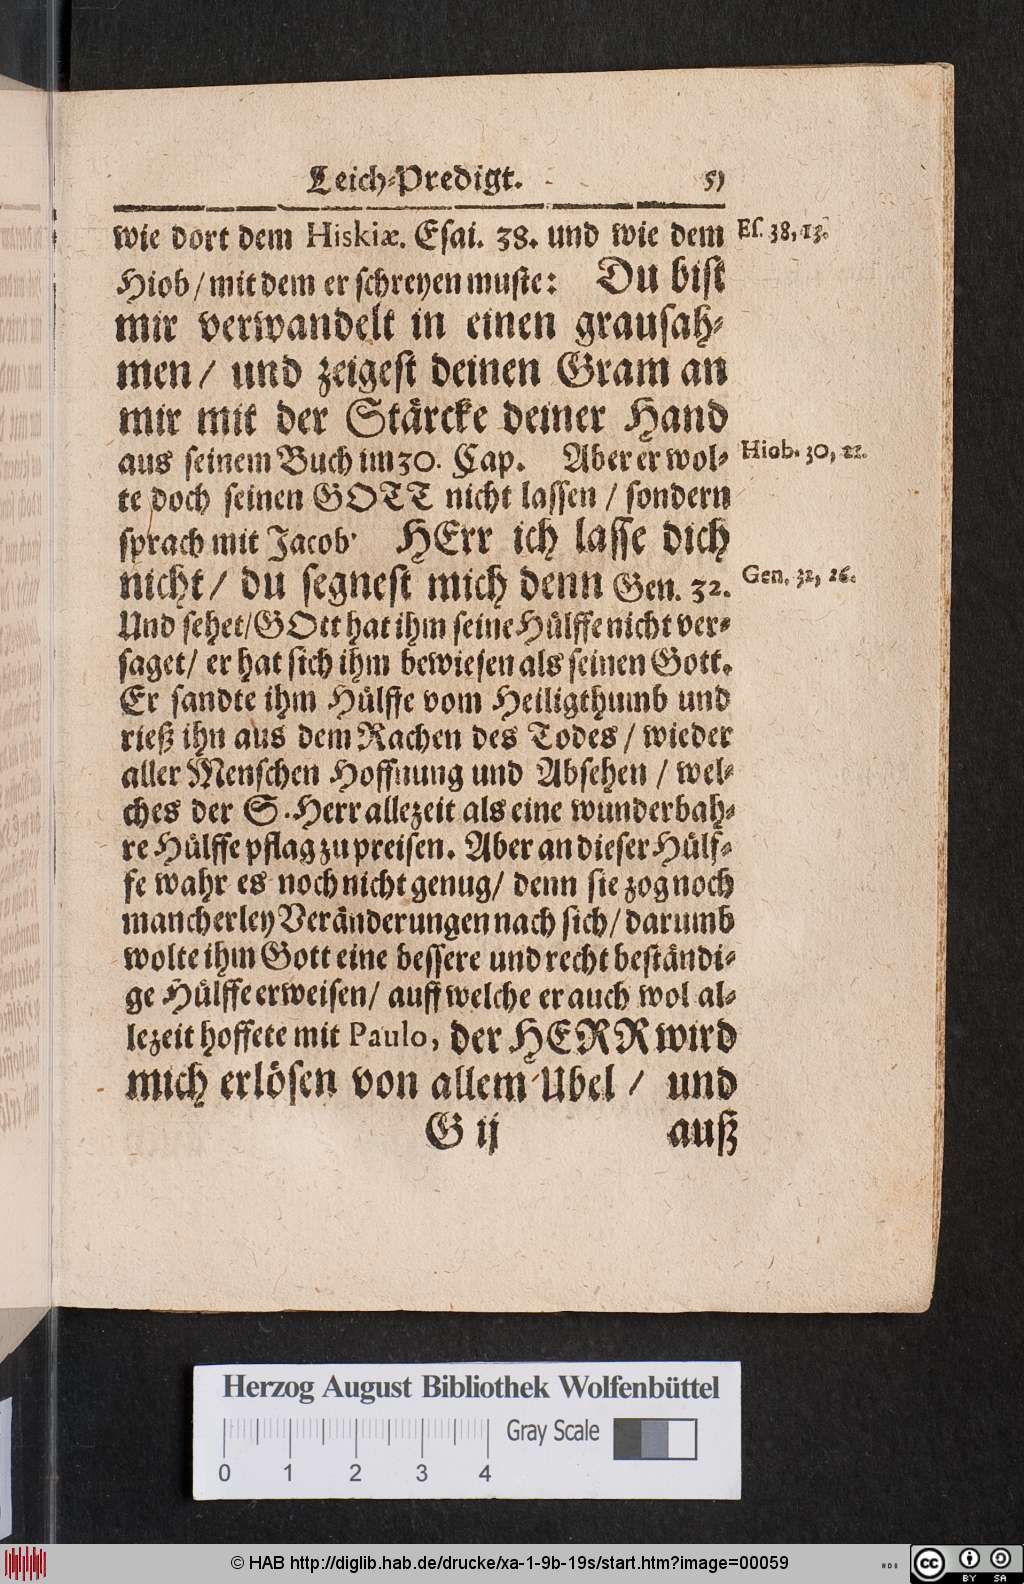 Leich-Predigt. 51
wie dort dem Hiskiæ. Esai. 38. und wie dem
Es. 38, 13.
Hiob / mit dem er schreyen muste: Du bist
mir verwandelt in einen grausah-
men / und zeigest deinen Gram an
mir mit der Stärcke deiner Hand
aus seinem Buch im 30. Cap. Aber er wol-
Hiob. 30, 21.
te doch seinen GOTT nicht lassen / sondern
sprach mit Jacob HErr ich lasse dich
nicht / du segnest mich denn Gen. 32.
Gen. 32, 26.
Und sehet / GOtt hat ihm seine Hülffe nicht ver-
saget / er hat sich ihm bewiesen als seinen Gott.
Er sandte ihm Hülffe vom Heiligthumb und
rieß ihn aus dem Rachen des Todes / wieder
aller Menschen Hoffnung und Absehen / wel-
ches der S. Herr allezeit als eine wunderbah-
re Hülffe pflag zu preisen. Aber an dieser Hülf-
fe wahr es noch nicht genug / denn sie zog noch
mancherley Veränderungen nach sich / darumb
wolte ihm Gott eine bessere und recht beständi-
ge Hülffe erweisen / auff welche er auch wol al-
lezeit hoffete mit Paulo, der HERR wird
mich erlösen von allem Ubel / und
G ij auß
Herzog August Bibliothek Wolfenbüttel
Gray Scale
0 1 2 3 4
© HAB http://diglib.hab.de/drucke/xa-1-9b-19s/start.htm?image=00059
cc BY SA